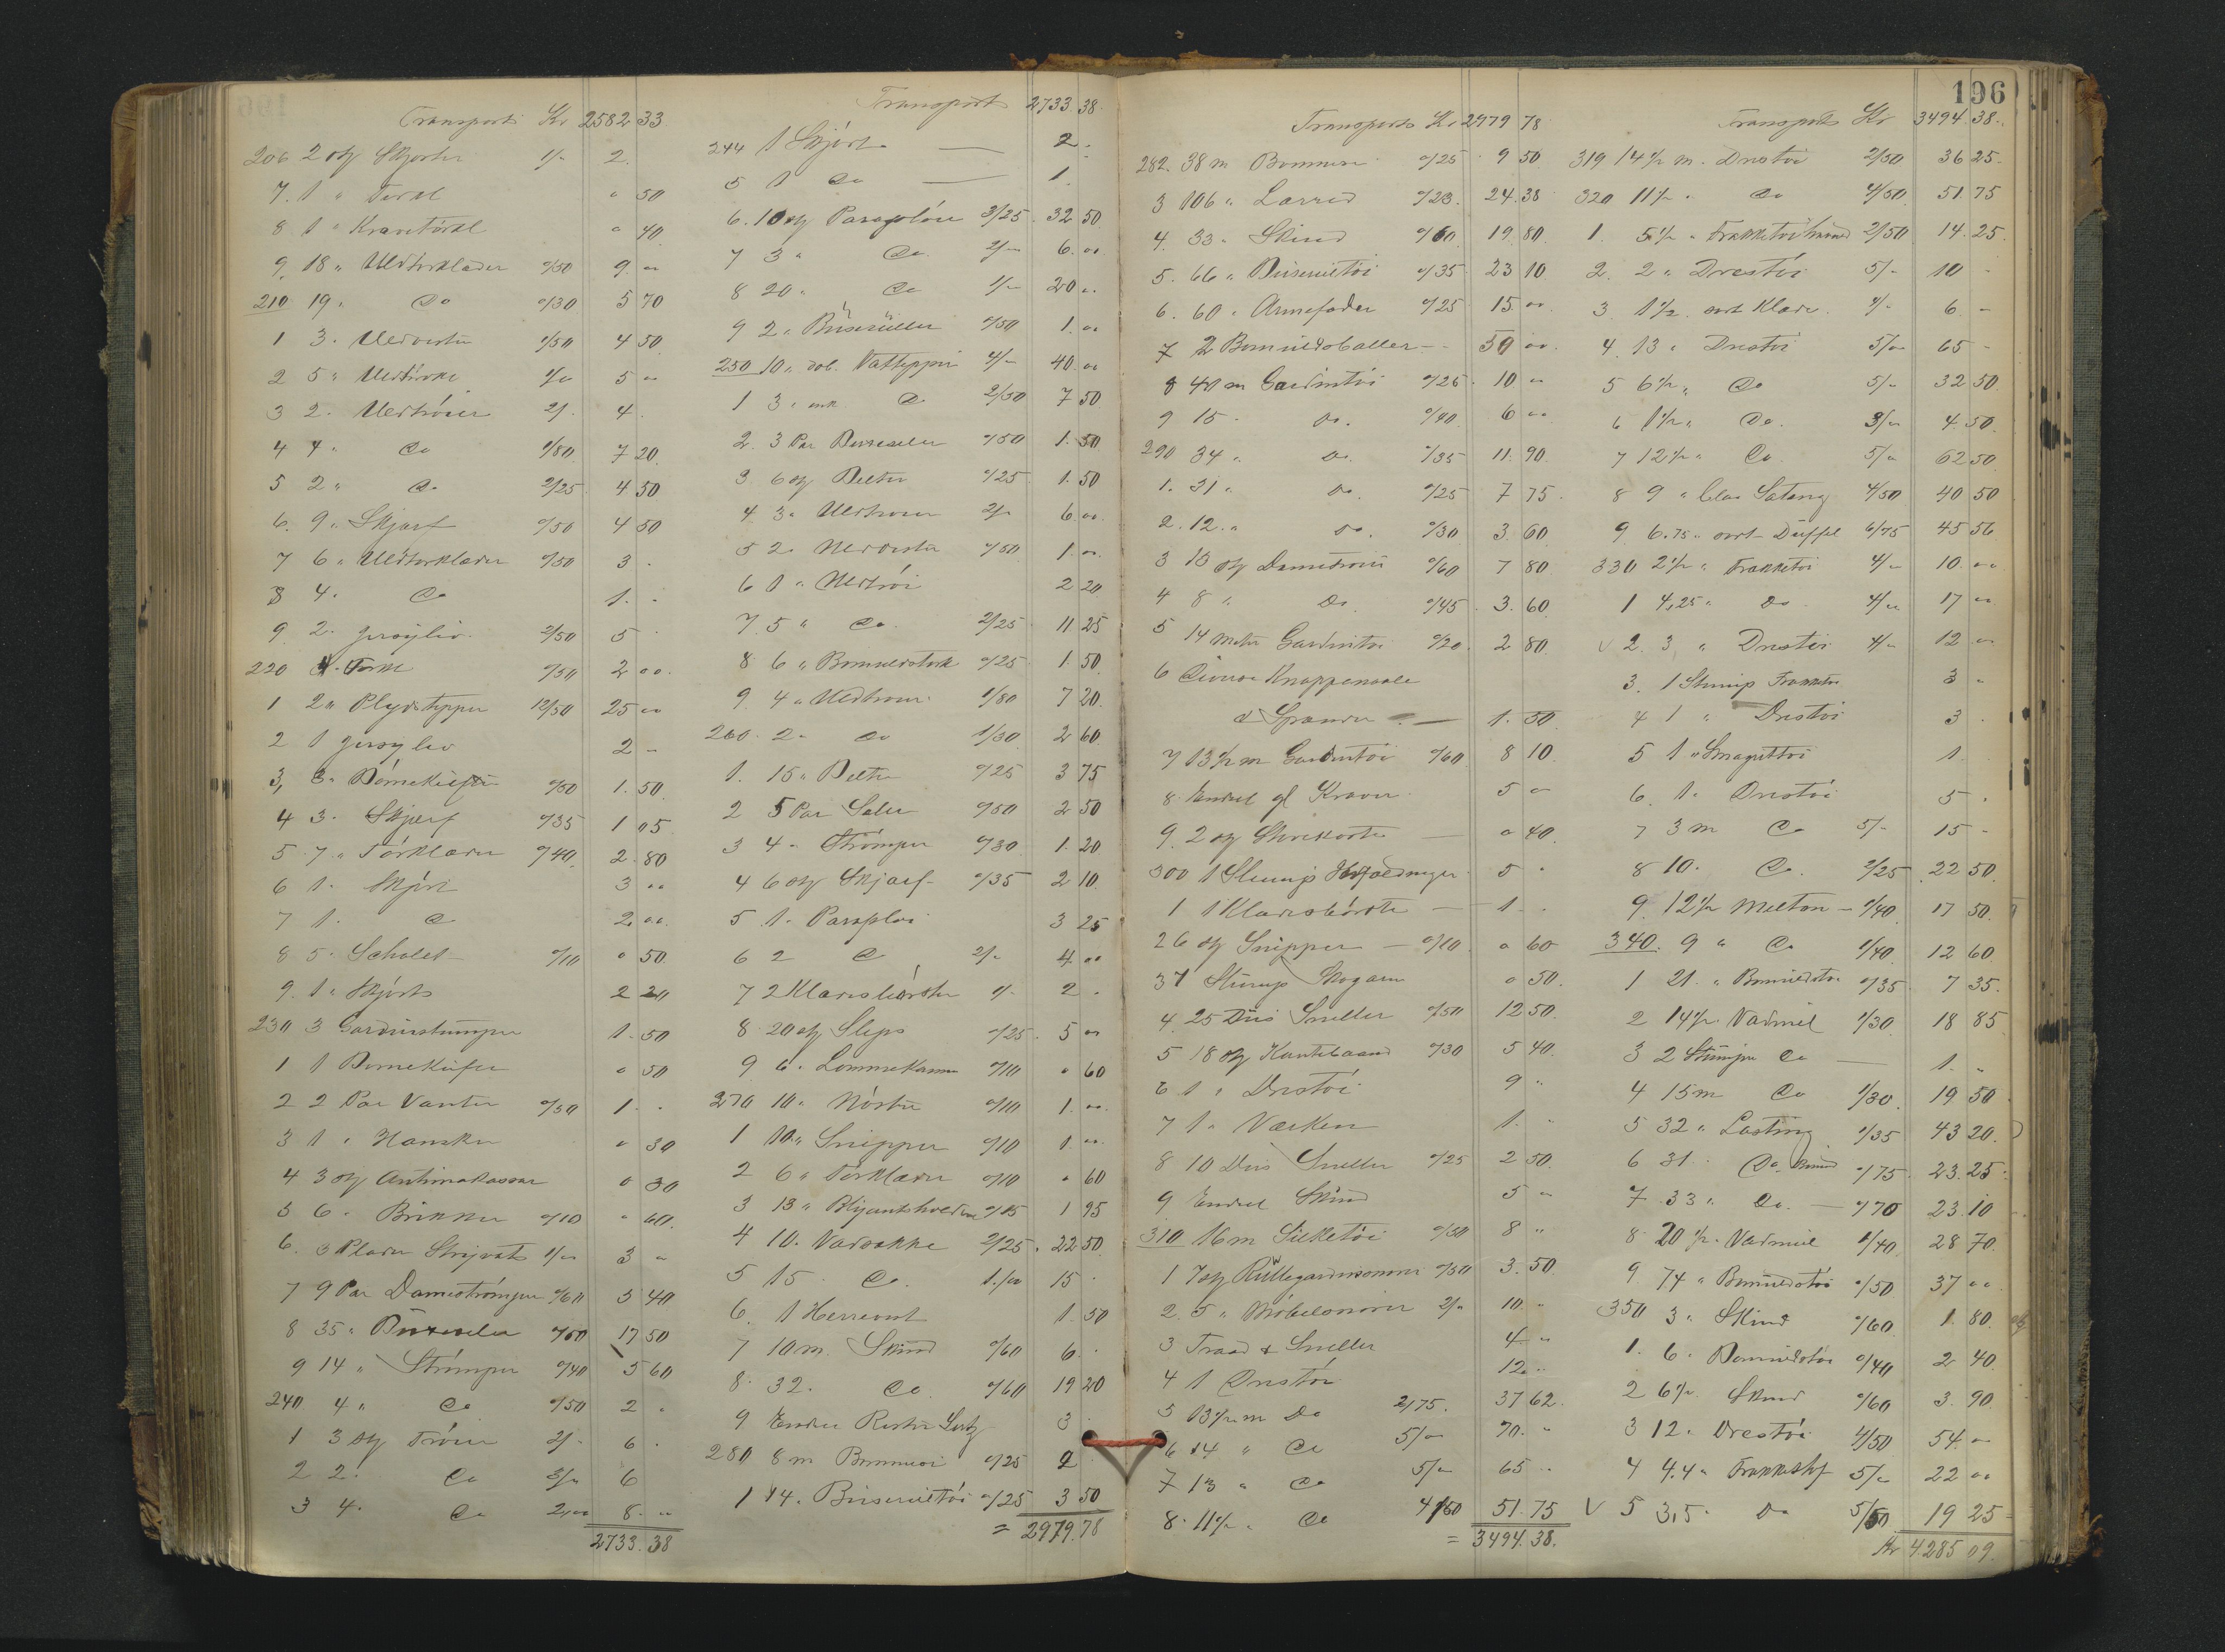 Transport Kr 2582 33
206 2 stk Skjorter 1/- 2.
7. 1 " Tørkl " 50
8 1 " Kravetörkl " 40
9 18 " Uldtørklæder 0/50 9. "
210 19 " Do 0/30 5 70
1 3 " Uldveste 1/50 4 50
2 5 " 1/- 5 "
3 2 " Uldtröier 2/- 4.
4 4 " Do 1/80 7 20
5 2 " Do 2/25 4 50
6. 9 " Skjærf 0/50 4 50
7 6 " Uldtørklæder 0/50 3 -
8 4 " Do 1. -
9 2 " Jersyliv 2/50 5 -
220 4 " Tørkl 0/50 2 00
1 2 " Plydstepper 12/50 25 00
2 1 Jersyliv 2 -
3, 3 " 0/50 1.50
4 3 " Skjerf 0/35 1 05
5 7 " Törklæder 0/40 2.80
6 1 " Skjört 3 00
7 1 " Do 2.00
8 5 " 0/10 " 50
9. 1 " Skjörts 2 20
230 3 Gardinstumper 1.50
1 1 " 50
2 2 Par Vanter 0/50 1. -
3 1 " Hansker " 30
4 3 stk Antimakassar 0 30
5 6 " Brikker 0/10 " 60.
6. 3 1/00 3 "
7 9 Par Dameströmper 0/60 5 40
8 35 " Buxeseler 0/50 17 50
9 14 " Strömper 0/40 5 60
240 4 " Do 0/50 2 "
1 3 stk Tröier 2/- 6 -
2 2 " Do 3/- 6
3 4 " Do 2,00 8. "
2733.38
Transport 2733.38
244 1 Skjört — 2 -
5 1 Do — 1
6. 10 stk Parapløie 3/25 32 50
7 3 " Do 2/- 6.00
8 20 " Do 1/- 20 "
9 2 " 0/50 1.00
250 10 " dob. Vattepper 4/- 40.00
1 3 " enk. Do 2/50 7 50
2. 3 Par Buxeseler 0/50 1.50
3 6 stk Belter 0/25 1.50
4 3 " Uldtröier 2/- 6.00
5 2 " Uldveste 0/50 1.00
6 1 " Uldtröi 2 20
7. 5 " Do 2/25 11 25
8 6 " Bomuldstørk 0/25 1.50
9. 4 " Uldtröier 1/80 7 20
260. 2 " Do 1/30 2 60
1. 15 " Belter 0/25 3 75
2 5 Par Seler 0/50 2 50
3 4 " Strömper 0/30 1.20
4 6 stk Skjærf 0/35 2 10
5 1 " Parapløi 3 25
6 2 Do 2/- 4.00
7 2 Klædesbørster 1/- 2 -
8 20 stk Slips 0/25 5 00
9 6 " Lommekamme 0/10 " 60
270 10 " Nöster 0/10 1.00
1 10 " Snipper 0/10 1.00
2 6 " Törklæder 0/10 " 60
3 13 " Blyantsholdere 0/15 1 95
4 10 " Vadsække 2/25 22 50
5 15 Do 1/00 15 -
6. 1 Herrevest 1.50
7 10 m. Skind 0/60 6 -
8. 32 " Do 0/60 19 20
9 Endel Rester 3 -
280 8 m 0/25 2 -
1 14 " 0/25 3 50
= 2979.78
196
Transport Kr 2979 78
282. 38 m 0/25 9 50
3 106 " Lærred 0/23 24.38
4. 33 " Skind 0/60 19 80
5. 66 " 0/35 23 10
6. 60 " Armefoder 0/25 15 00
7 2 Bomuldsballer — 50 00
8 40 m Gardintöi 0/25 10 "
9 15 " Do. 0/40 6 00
290 34 " Do. 0/35 11.90
1. 31 " Do. 0/25 7 75
2. 12 " Do. 0/30 3.60
3 13 stk Dametröier 0/60 7 80
4 8 " Do. 0/45 3.60
5 14 meter Gardintöi 0/20 2 80
6 Diverse Knappenaale
& Spænder — 1.50
7 13 1/2 m Gardintöi 0/60 8 10
8. Endel gl Kraver 5 "
9. 2 stk — " 40.
300 1 Stump 5 "
1 1 Klædesbörste — 1. -
2 6 stk Snipper — 0/10 " 60
3 1 Stump " 50.
4. 25 Dus Sneller 0/50 12 50.
5 18 stk Kantebaand 0/30 5 40.
6 1 " Drestöi 9 "
7 1 " Værken 1. "
8 10 Dus Sneller 0/25 2 50
9 Endel Skind 5 "
310 16 m Silketöi 0/50 8 "
1 7 stk Rullegardinsnorer 0/50 3.50
2. 5 " Möbelsnorer 2/- 10. "
3 Traad & Sneller 4 "
4 1 Drestöi 12 "
5 13 1/2 m Do 2/75. 37 62.
6 14 " Do 5/00 70. "
7 13 " Do 5/- 65 "
8. 11 1/2 " Do 4/50 51.75
= 3494.38.
Transport Kr 3494.38.
319 14 1/2 m. Drestöi 2/50 36 25
320 11 1/2 " Do 4/50 51.75
1. 5 " 2/50 14.25
2. 2 " Drestöi 5/- 10 -
3 1 1/2 " sort Klæde 4/- 6 -
4 13 " Drestöi 5/00 65 -
5 6 1/2 " Do 5/- 32 50
6 1 1/2 " Do. 3/00 4.50
7 12 1/2 " Do 5/" 62 50
8 9 " blaa Satang 4/50 40 50
9 6.75 " sort Düffel 6/75 45 56
330 2 1/2 " Frakketöi 4/- 10.00
1 4,25 " Do 4/00 17 00
v 2. 3 " Drestöi 4/- 12 00
3. 1 Stump Frakketöi 3 "
4 1 " Drestöi 3 -
5 1 " 1.
6. 1 " Drestöi 5 -
7 3 m Do 5/- 15 -
8 10. Do. 2/25 22 50
9. 12 1/2 Melton — 1/40 17 50
340. 9 " Do 1/40 12 60
1 21 " Bomuldstöi 0/35 7 35
2 14 1/2 " Vadmel 1/30 18 85
3 2 Stumper Do — 1. "
4 15 m Do 1/30 19 50
5 32 " Lasting 1/35 43 20
6 31 Do 0/75 23.25
7 33 " Do. — 0/70 23.10
8 20 1/2 " Vadmel 1/40 28 70
9. 74 " Bomuldstöi 0/50 37 00
350 3 " Skind 0/60 1.80
1. 6 " Bomuldstöi 0/40 2 40
2 6 1/2 Skind 0/60 3.90
3 12 " Drestöi 4/50 54.00
4 4.4 " 5/- 22 00
V 5 3,5 " Do 5/50 19 25
Kr 4285 09.